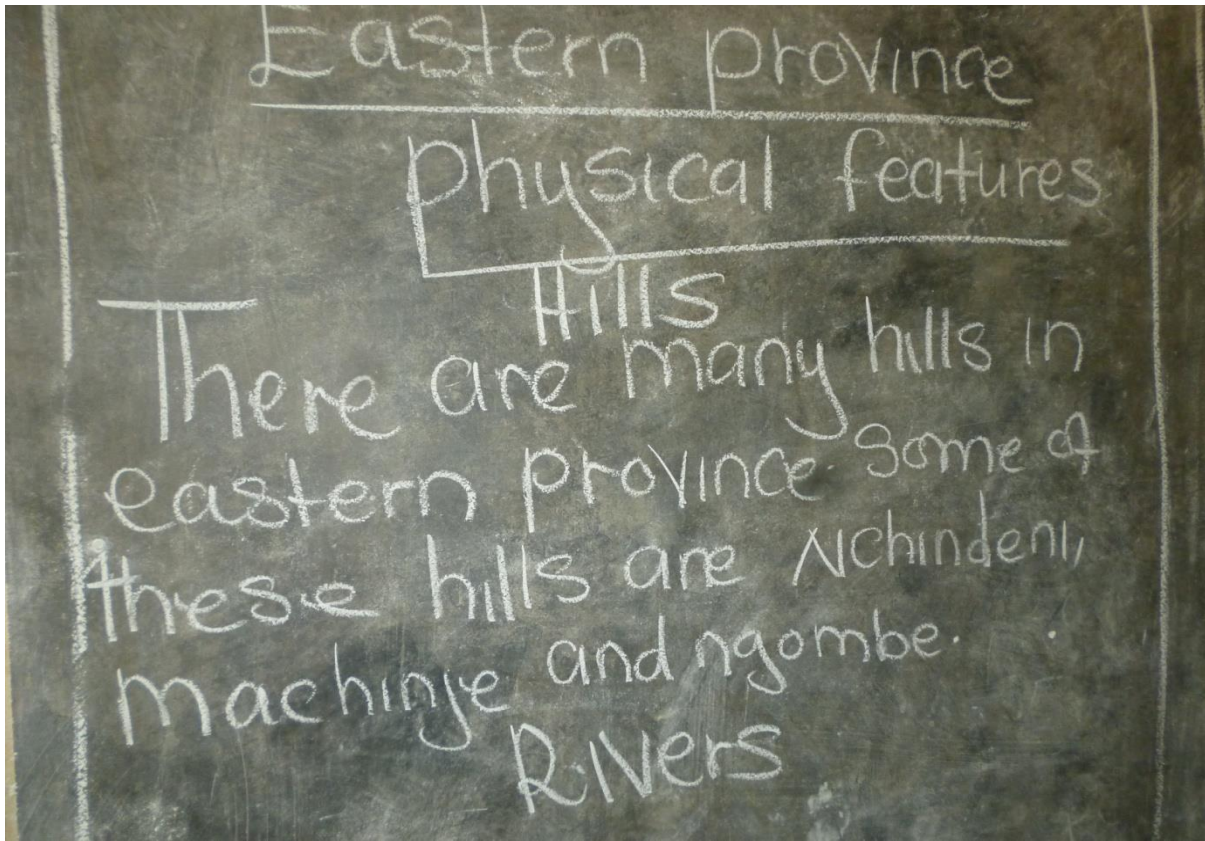 Eastern province
physical features
Hills
There are many hills in
eastern province. Some of
these hills are Nchindeni,
machinje and ngombe.
Rivers